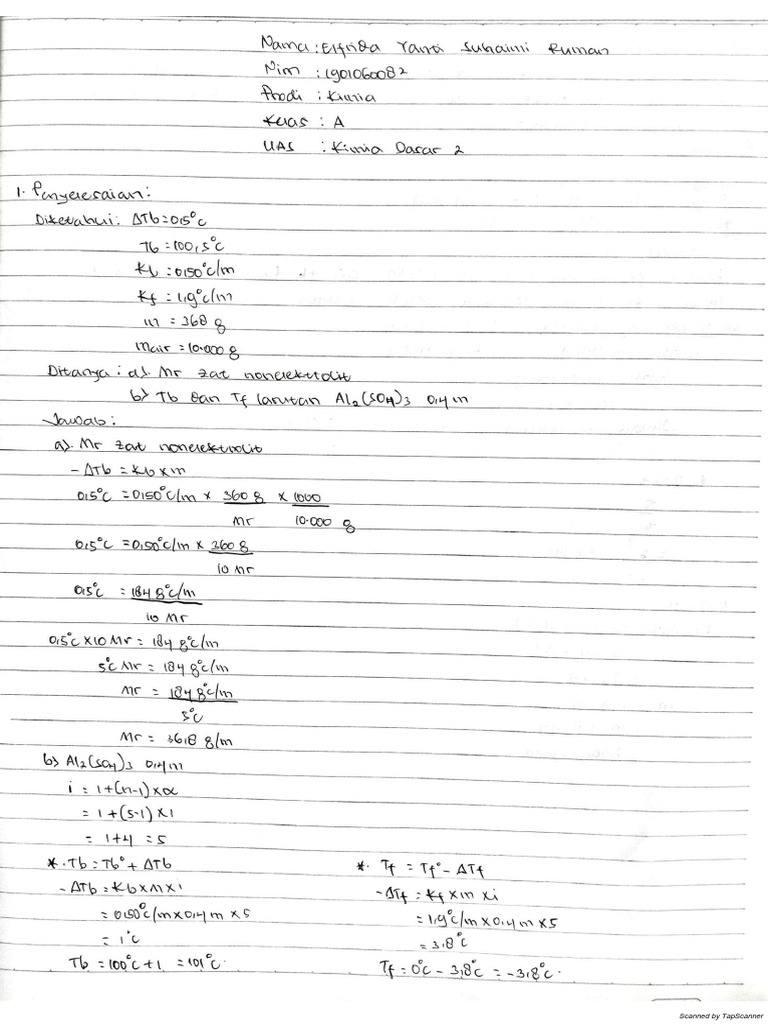 Nama : Elfrida Yanti Suhaimi Ruman
Nim : 1901060082
Prodi : Kimia
Kelas : A
UAS : Kimia Dasar 2
1. Penyelesaian:
Diketahui: ΔTb = 0,5°C
Tb = 100,5°C
Kb = 0,50°C/m
Kf = 1,9°C/m
m = 368 g
mair = 10.000 g
Ditanya : a). Mr zat nonelektrolit
b) Tb dan Tf larutan Al2(SO4)3 0,4 m
Jawab :
a). Mr zat nonelektrolit
- ΔTb = Kb x m
0,5°C = 0,50°C/m x 360 g x 1000
Mr 10.000 g
0,5°C = 0,50°C/m x 360 g
10 Mr
0,5°C = 184 g°C/m
10 Mr
0,5°C x 10 Mr = 184 g°C/m
5°C Mr = 184 g°C/m
Mr = 184 g°C/m
5°C
Mr = 36,8 g/m
b) Al2(SO4)3 0,4 m
i = 1+(n-1) x α
= 1+(5-1) x 1
= 1+4 = 5
*. Tb = Tb° + ΔTb
- ΔTb = Kb x m x i
= 0,50°C/m x 0,4 m x 5
= 1°C
Tb = 100°C + 1 = 101°C.
*. Tf = Tf° - ΔTf
- ΔTf = Kf x m x i
= 1,9°C/m x 0,4 m x 5
= 3,8°C
Tf = 0°C - 3,8°C = -3,8°C.
Scanned by TapScanner